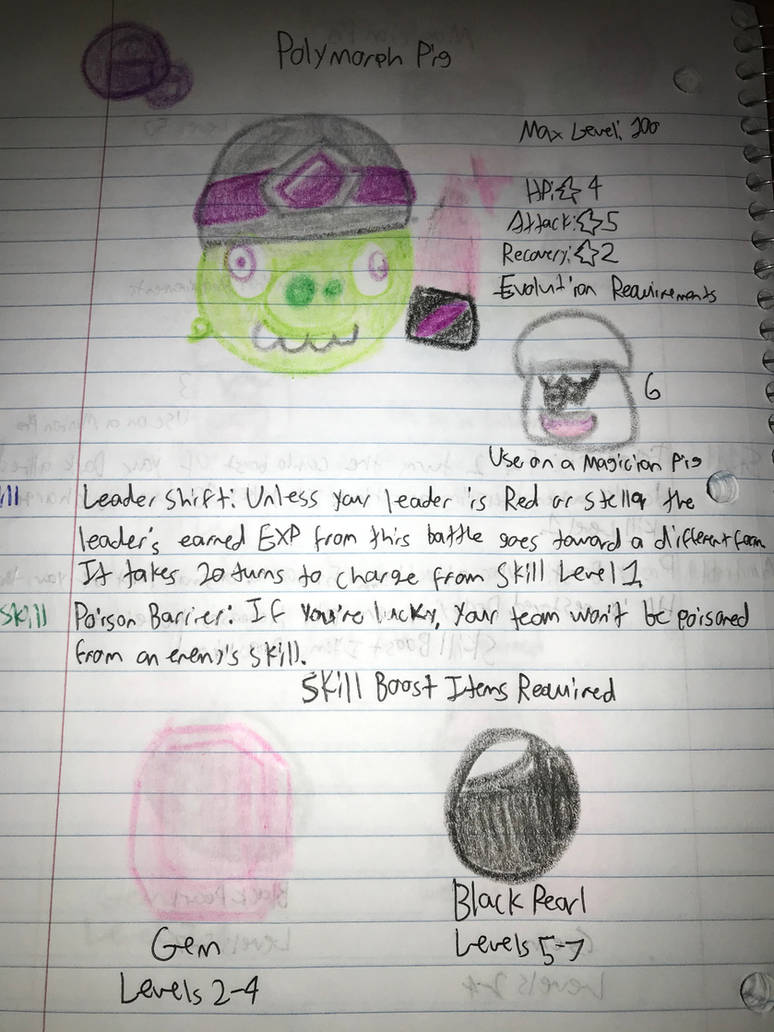 Polymorph Pig
Max Level: 100
HP: ☆ 4
Attack: ☆ 5
Recovery: ☆ 2
Evolution Requirements
6
Use on a Magician Pig
ill Leader Shift: Unless your leader is Red or Stella, the
leader's earned EXP from this battle goes toward a different form.
It takes 20 turns to charge from Skill Level 1.
Skill Poison Barrier: If you're lucky, your team won't be poisoned
from an enemy's skill.
Skill Boost Items Required
Gem
Levels 2-4
Black Pearl
Levels 5-7